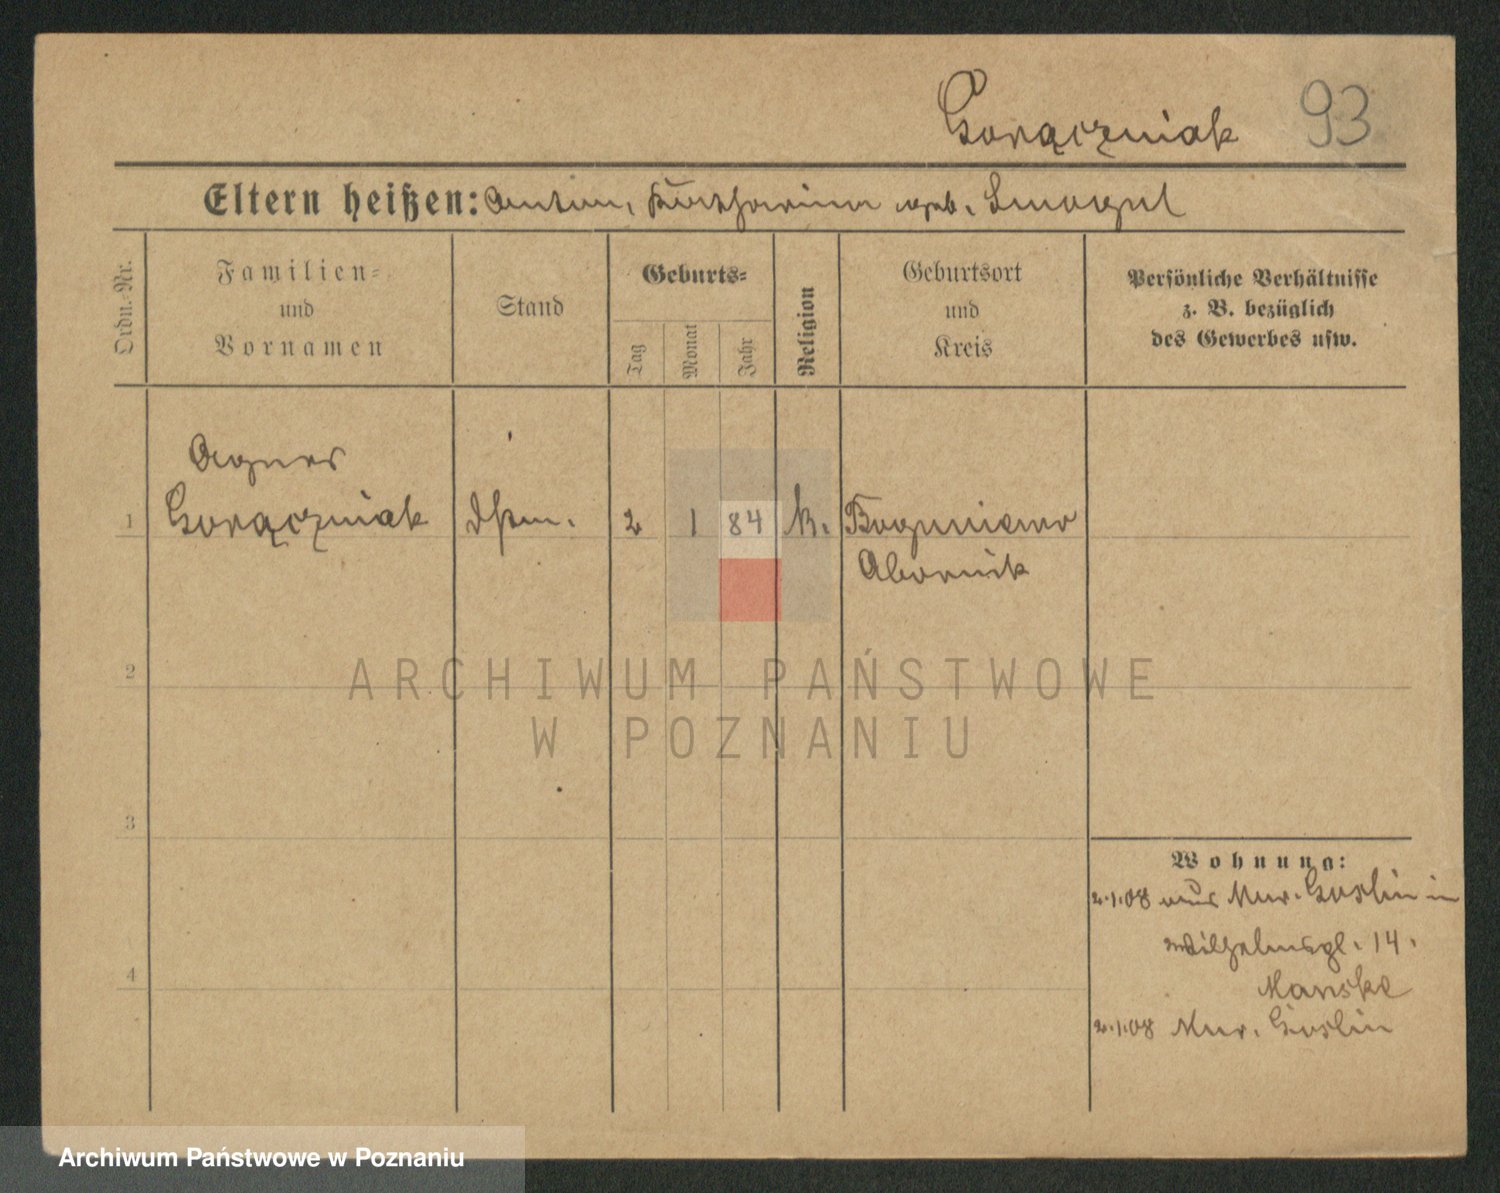 Gorączniak 93
Eltern heißen: Anton, Katharina geb. Smogul
Ordn.-Nr.
Familien-
und
Vornamen
Stand
Geburts-
Tag
Monat
Jahr
Religion
Geburtsort
und
Kreis
Persönliche Verhältnisse
z. B. bezüglich
des Gewerbes usw.
Agnes
1 Gorączniak 2 1 84 k. Boguniewo
Obornik
2
ARCHIWUM PAŃSTWOWE
W POZNANIU
3
Wohnung:
2.1.08 aus Mur. Goslin in
Wilhelmspl. 14.
Manske
4
2.1.08 Mur. Goslin
Archiwum Państwowe w Poznaniu